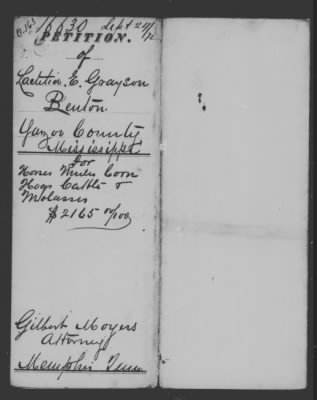 16630 Sept 24/72
PETITION.
of
Laetitia. E. Grayson
Benton
Yazoo County
Mississippi
for
Horses Mules Corn
Hogs Cattle &
Molasses
$2165 00/00
Gilbert Moyers
Attorney
Memphis Tenn